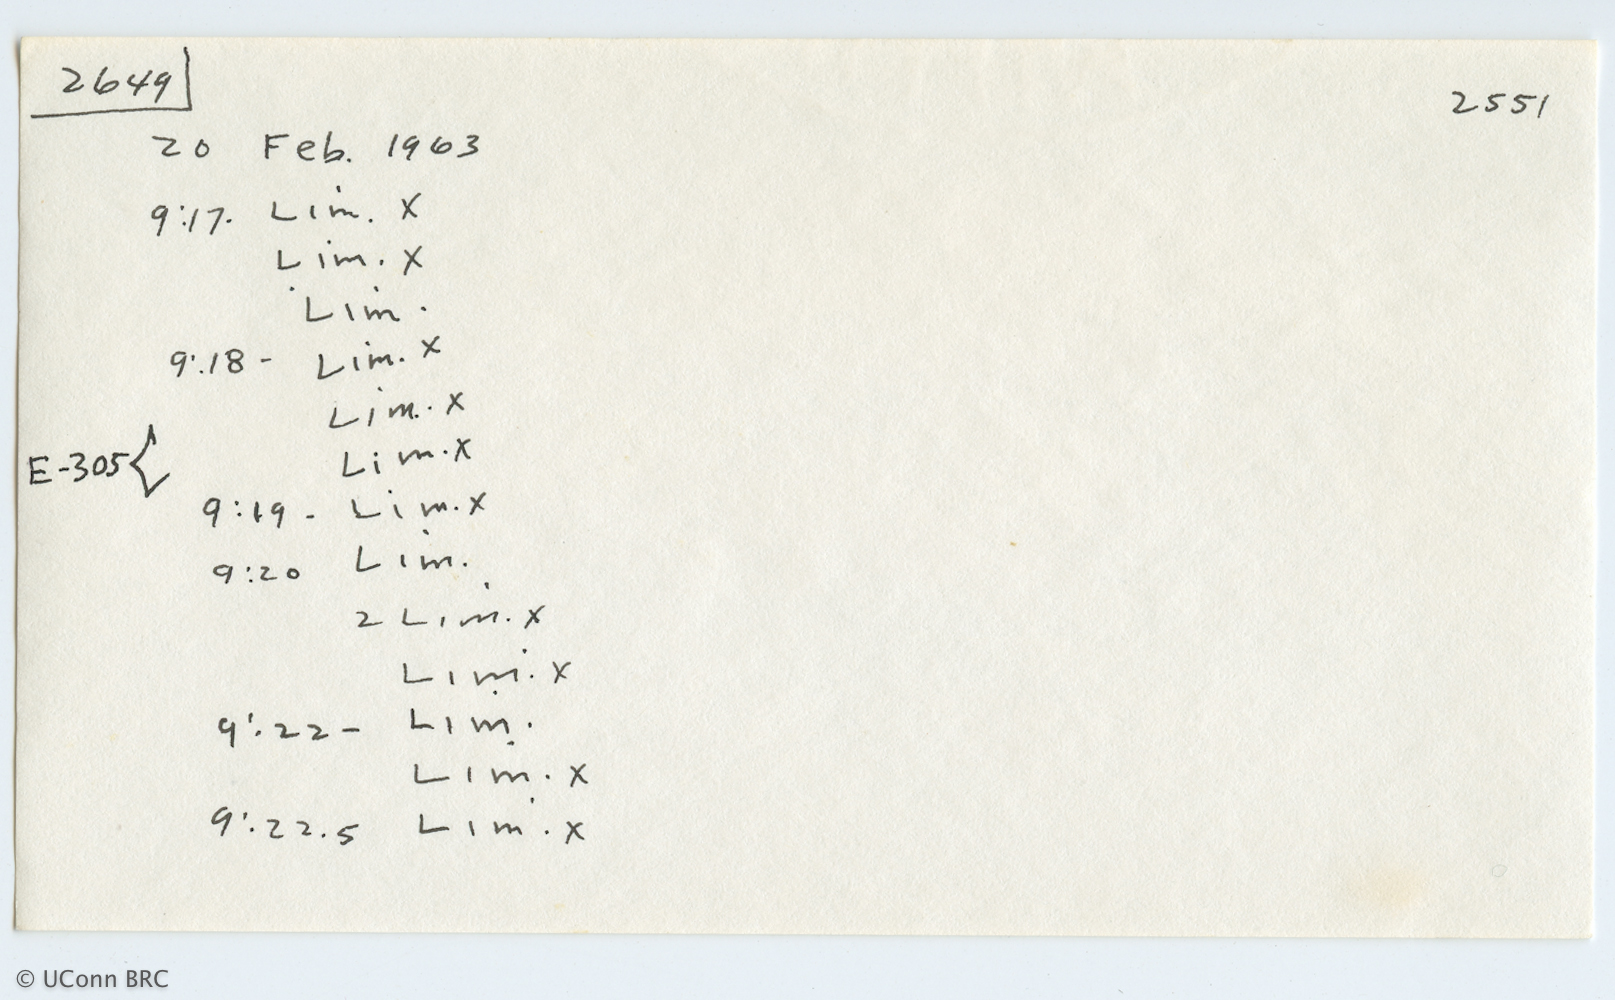 2649
2551
20 Feb. 1963
9:17. Lim. X
Lim. X
Lim.
9:18 - Lim. X
Lim. X
Lim. X
E-305{
9:19 - Lim. X
9:20 Lim.
2 Lim. X
Lim. X
9:22 - Lim.
Lim. X
9:22.5 Lim. X
© UConn BRC